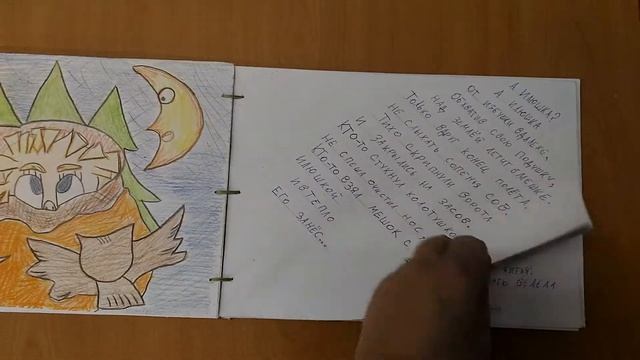 А ИЛЮШКА?
А ИЛЮШКА
ОТ ИЗБУШКИ ВДАЛЕКЕ,
ОБХВАТИВ СВОЮ ПОДУШКУ,
НАД ЗЕМЛЁЙ ЛЕТИТ В МЕШКЕ.
ТОЛЬКО ВДРУГ КОНЕЦ ПОЛЁТА.
НЕ СЛЫХАТЬ СОПЕНЬЯ СОВ.
ТИХО СКРИПНУЛИ ВОРОТА
И ЗАКРЫЛИСЬ НА ЗАСОВ.
КТО-ТО СТУКНУЛ КОЛОТУШКО
НЕ СПЕША ОЧИСТИЛ НОС
КТО-ТО ВЗЯЛ МЕШОК С
ИЛЮШКОЙ
И В ТЕПЛО
ЕГО ЗАНЁС...